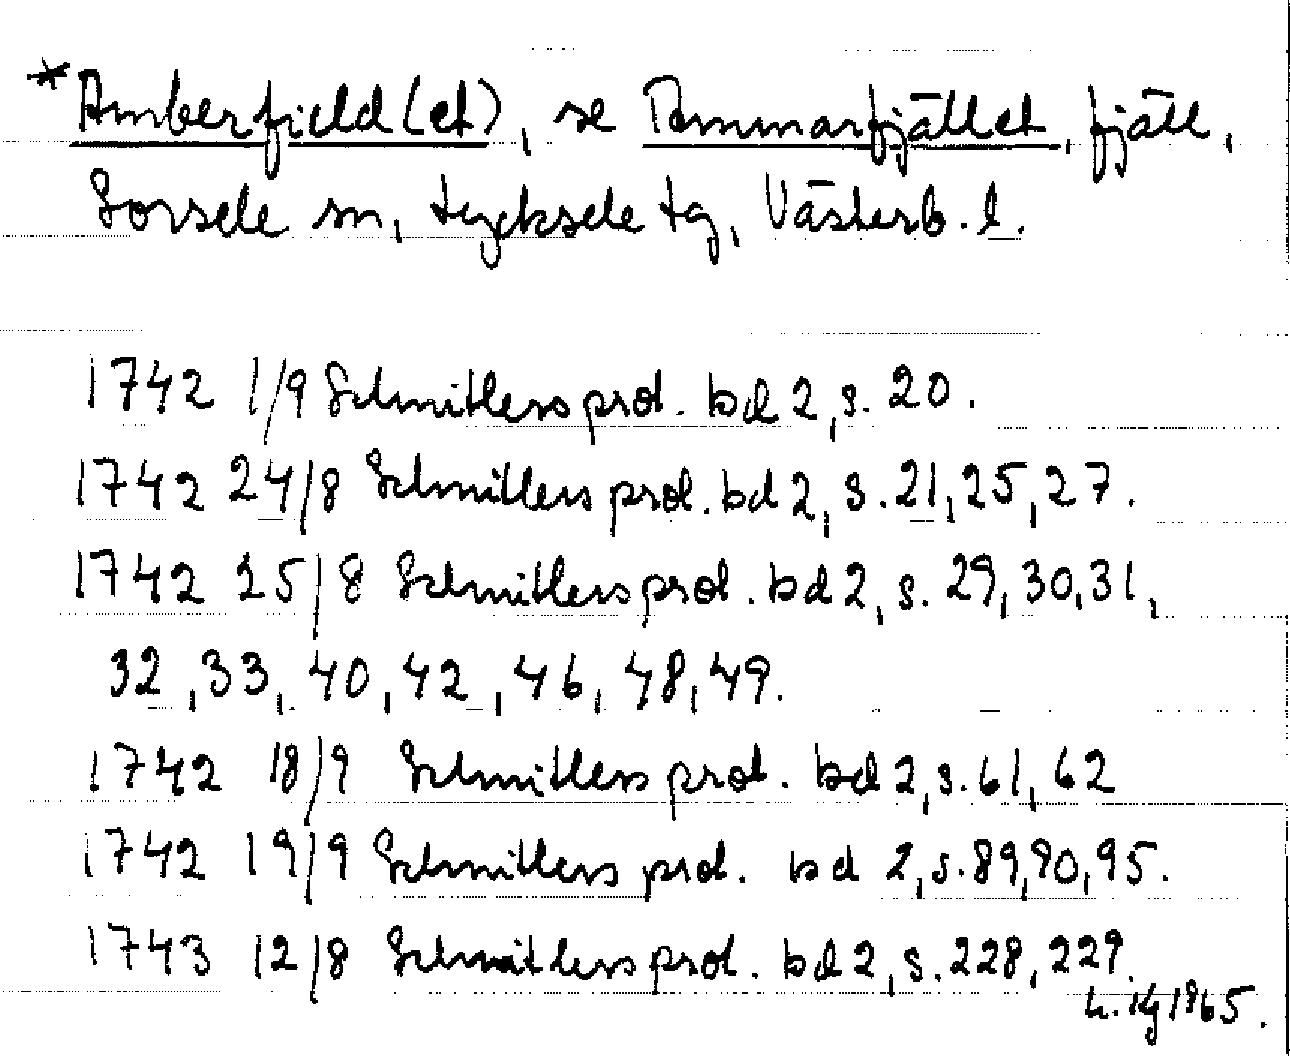 *Amberfield(et), se Ammarfjället, fjäll,
Sorsele sn, Lycksele tg, Västerb. l.
1742 1/9 Schnitlers prot. bd 2, s. 20.
1742 24/8 Schnitlers prot. bd 2, s. 21, 25, 27.
1742 25/8 Schnitlers prot. bd 2, s. 29, 30, 31,
32, 33, 40, 42, 46, 48, 49.
1742 18/9 Schnitlers prot. bd 2, s. 61, 62
1742 19/9 Schnitlers prot. bd 2, s. 89, 90, 95.
1743 12/8 Schnitlers prot. bd 2, s. 228, 229.
1965.